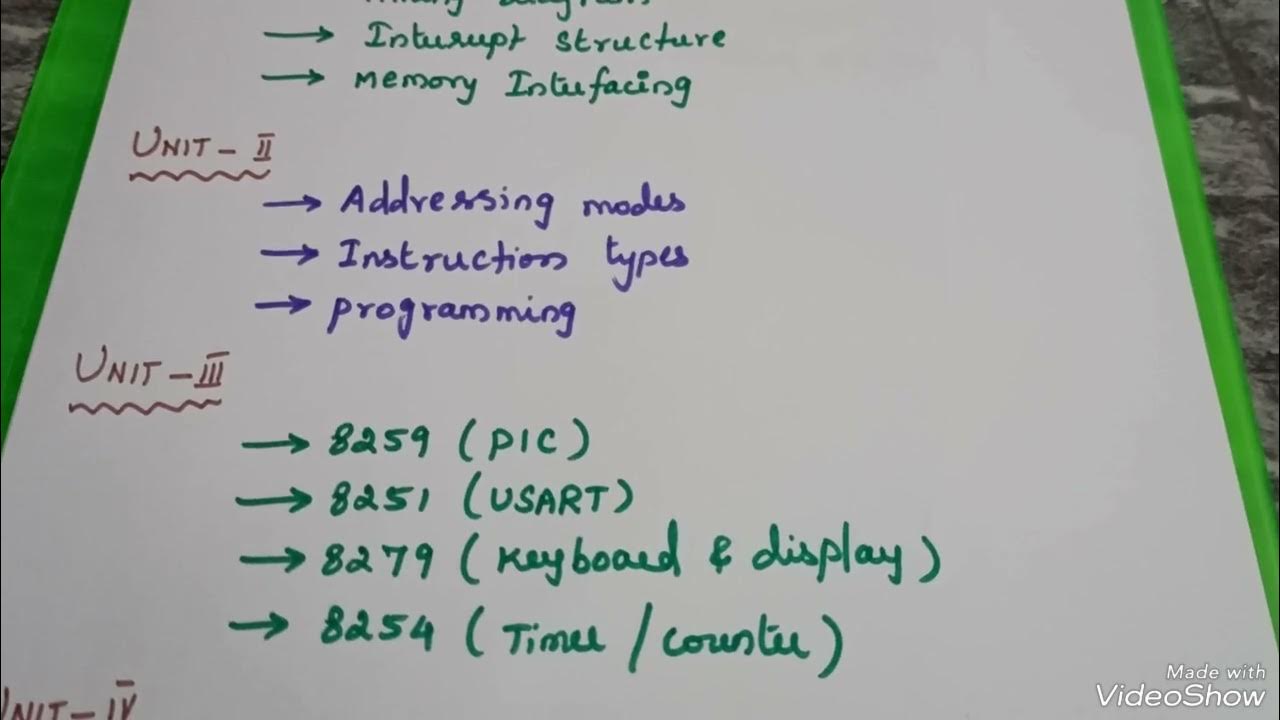 Timing diagram
→ Interrupt structure
→ Memory Interfacing
UNIT - II
→ Addressing modes
→ Instruction types
→ programming
UNIT - III
→ 8259 (PIC)
→ 8251 (USART)
→ 8279 (Keyboard & display)
→ 8254 (Timer / counter)
UNIT - IV
Made with
VideoShow